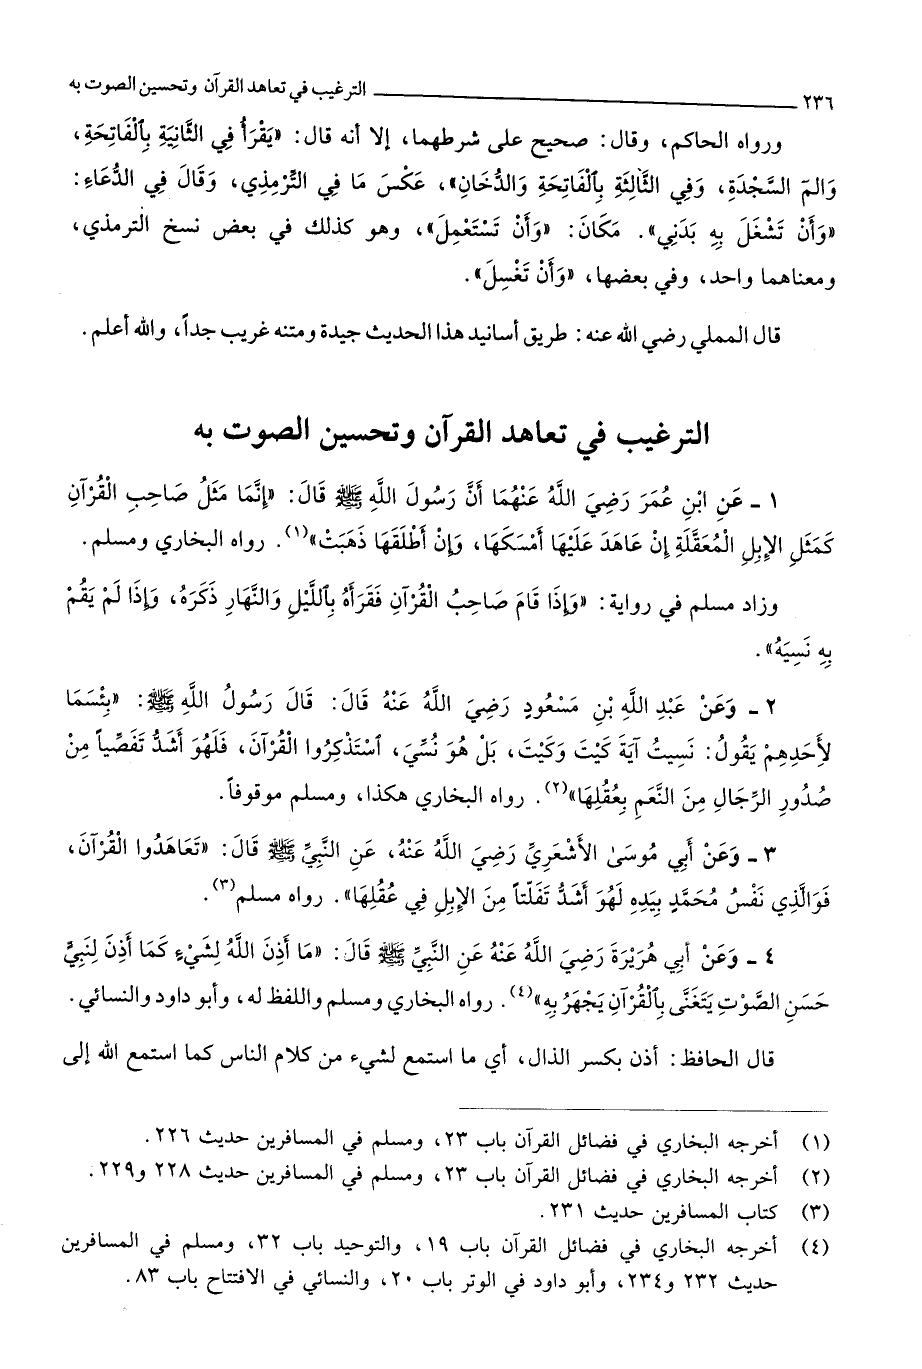 ٢٣٦ الترغيب في تعاهد القرآن وتحسين الصوت به
ورواه الحاكم، وقال: صحيح على شرطهما، إلا أنه قال: «يَقْرَأُ فِي الثَّانِيَةِ بِٱلْفَاتِحَةِ،
وَالمَ السَّجْدَةِ، وَفِي الثَّالِثَةِ بِٱلْفَاتِحَةِ وَالدُّخَانِ»، عَكْسَ مَا فِي التِّرْمِذِي، وَقَالَ فِي الدُّعَاءِ:
«وَأَنْ تَشْغَلَ بِهِ بَدَنِي». مَكَانَ: «وَأَنْ تَسْتَعْمِلَ»، وهو كذلك في بعض نسخ الترمذي،
ومعناهما واحد، وفي بعضها، «وَأَنْ تَغْسِلَ».
قال المملي رضي الله عنه: طريق أسانيد هذا الحديث جيدة ومتنه غريب جداً، والله أعلم.
الترغيب في تعاهد القرآن وتحسين الصوت به
١ ـ عَنِ ابْنِ عُمَرَ رَضِيَ اللَّهُ عَنْهُمَا أَنَّ رَسُولَ اللَّهِ ﷺ قَالَ: «إِنَّمَا مَثَلُ صَاحِبِ الْقُرْآنِ
كَمَثَلِ الإِبِلِ الْمُعَقَّلَةِ إِنْ عَاهَدَ عَلَيْهَا أَمْسَكَهَا، وَإِنْ أَطْلَقَهَا ذَهَبَتْ»(١). رواه البخاري ومسلم.
وزاد مسلم في رواية: «وَإِذَا قَامَ صَاحِبُ الْقُرْآنِ فَقَرَأَهُ بِٱللَّيْلِ وَالنَّهَارِ ذَكَرَهُ، وَإِذَا لَمْ يَقُمْ
بِهِ نَسِيَهُ».
٢ ـ وَعَنْ عَبْدِ اللَّهِ بْنِ مَسْعُودٍ رَضِيَ اللَّهُ عَنْهُ قَالَ: قَالَ رَسُولُ اللَّهِ ﷺ: «بِئْسَمَا
لأَحَدِهِمْ يَقُولُ: نَسِيتُ آيَةَ كَيْتَ وَكَيْتَ، بَلْ هُوَ نُسِّيَ، ٱسْتَذْكِرُوا الْقُرْآنَ، فَلَهُوَ أَشَدُّ تَفَصِّياً مِنْ
صُدُورِ الرِّجَالِ مِنَ النَّعَمِ بِعُقُلِهَا»(٢). رواه البخاري هكذا، ومسلم موقوفاً.
٣ ـ وَعَنْ أَبِي مُوسَىٰ الأَشْعَرِيِّ رَضِيَ اللَّهُ عَنْهُ، عَنِ النَّبِيِّ ﷺ قَالَ: «تَعَاهَدُوا الْقُرْآنَ،
فَوَالَّذِي نَفْسُ مُحَمَّدٍ بِيَدِهِ لَهُوَ أَشَدُّ تَفَلُّتاً مِنَ الإِبِلِ فِي عُقُلِهَا». رواه مسلم(٣).
٤ ـ وَعَنْ أَبِي هُرَيْرَةَ رَضِيَ اللَّهُ عَنْهُ عَنِ النَّبِيِّ ﷺ قَالَ: «مَا أَذِنَ اللَّهُ لِشَيْءٍ كَمَا أَذِنَ لِنَبِيٍّ
حَسَنِ الصَّوْتِ يَتَغَنَّى بِٱلْقُرْآنِ يَجْهَرُ بِهِ»(٤). رواه البخاري ومسلم واللفظ له، وأبو داود والنسائي.
قال الحافظ: أذن بكسر الذال، أي ما استمع لشيء من كلام الناس كما استمع الله إلى
(١) أخرجه البخاري في فضائل القرآن باب ٢٣، ومسلم في المسافرين حديث ٢٢٦.
(٢) أخرجه البخاري في فضائل القرآن باب ٢٣، ومسلم في المسافرين حديث ٢٢٨ و٢٢٩.
(٣) كتاب المسافرين حديث ٢٣١.
(٤) أخرجه البخاري في فضائل القرآن باب ١٩، والتوحيد باب ٣٢، ومسلم في المسافرين
حديث ٢٣٢ و٢٣٤، وأبو داود في الوتر باب ٢٠، والنسائي في الافتتاح باب ٨٣.